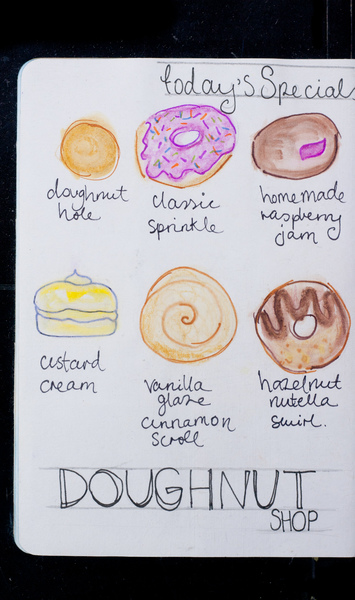 today's Special
doughnut
hole
classic
sprinkle
homemade
raspberry
jam
custard
cream
vanilla
glaze
cinnamon
scroll
hazelnut
nutella
swirl.
DOUGHNUT
SHOP